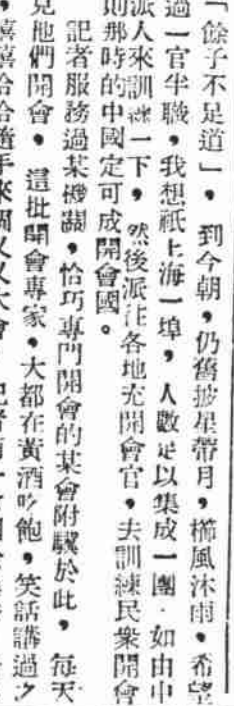 「餘子不足道」，到今朝，仍舊披星帶月，櫛風沐雨，希望
過一官半職，我想祇上海一埠，人數足以集成一團．如由中
派人來訓練一下，然後派往各地充開會官，去訓練民衆開會
則那時的中國定可成開會國。
記者服務過某機關，恰巧專門開會的某會附驥於此，每天
見他們開會，這批開會專家，大都在黃酒吃飽，笑話講過之
，嘻嘻哈哈隨手來個